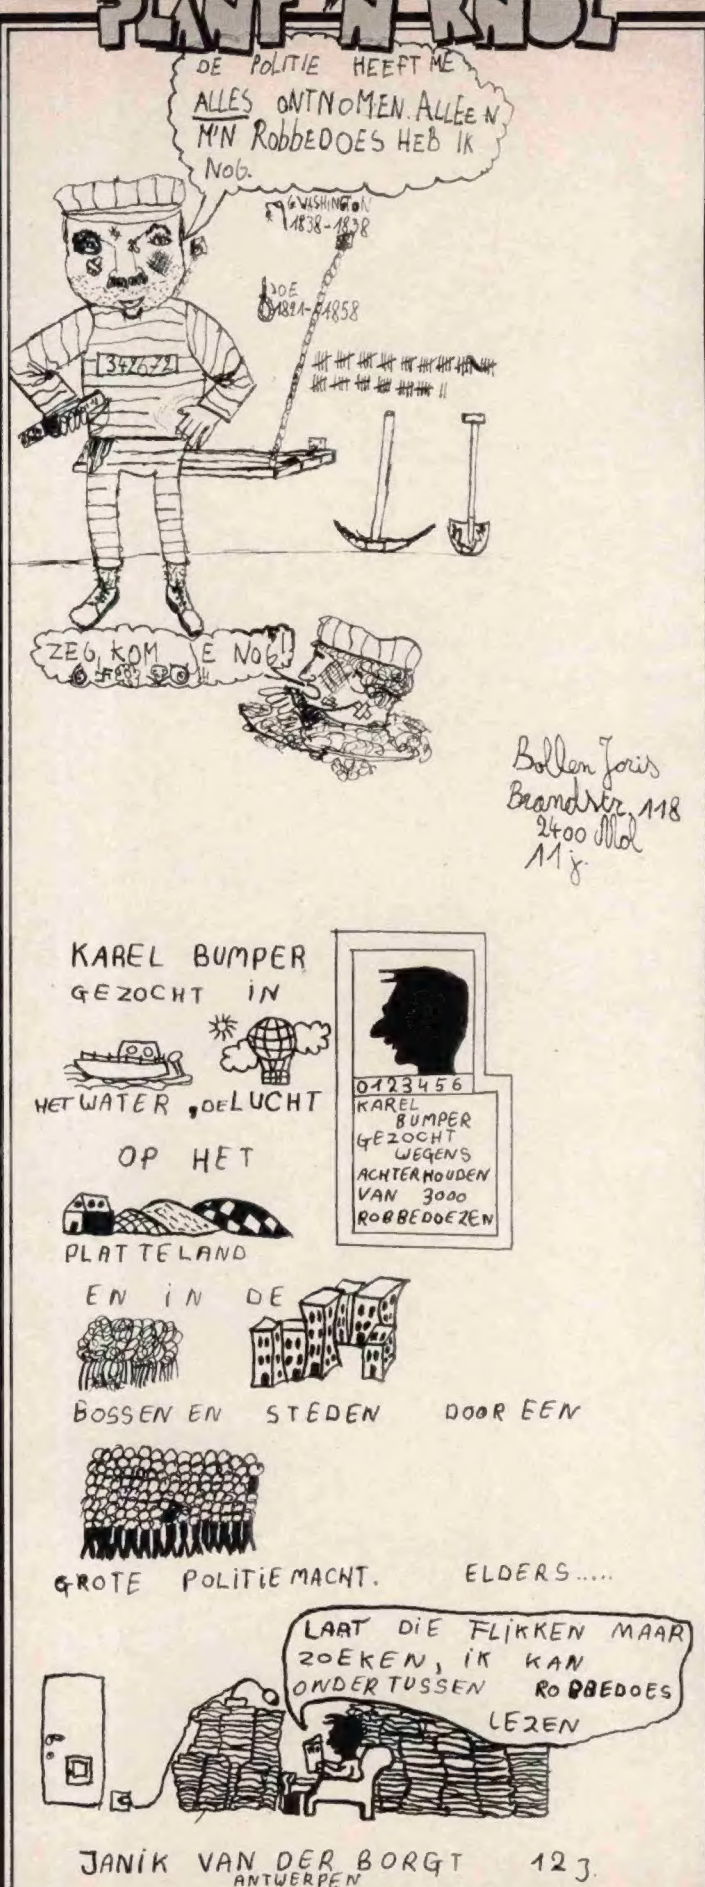 PLANT 'N KNOL
DE POLITIE HEEFT ME
ALLES ONTNOMEN. ALLEEN
M'N ROBBEDOES HEB IK
NOG.
G WASHINGTON
1838-1838
JOE
1821-1858
342672
ZEG, KOM JE NOG!!
Bollen Joris
Brandstr. 118
2400 Mol
11 j.
KAREL BUMPER
GEZOCHT IN
HET WATER, DE LUCHT
OP HET
PLATTELAND
EN IN DE
BOSSEN EN STEDEN DOOR EEN
GROTE POLITIEMACHT. ELDERS.....
0123456
KAREL
BUMPER
GEZOCHT
WEGENS
ACHTERHOUDEN
VAN 3000
ROBBEDOEZEN
LAAT DIE FLIKKEN MAAR
ZOEKEN, IK KAN
ONDERTUSSEN ROBBEDOES
LEZEN
JANIK VAN DER BORGT 12 j.
ANTWERPEN